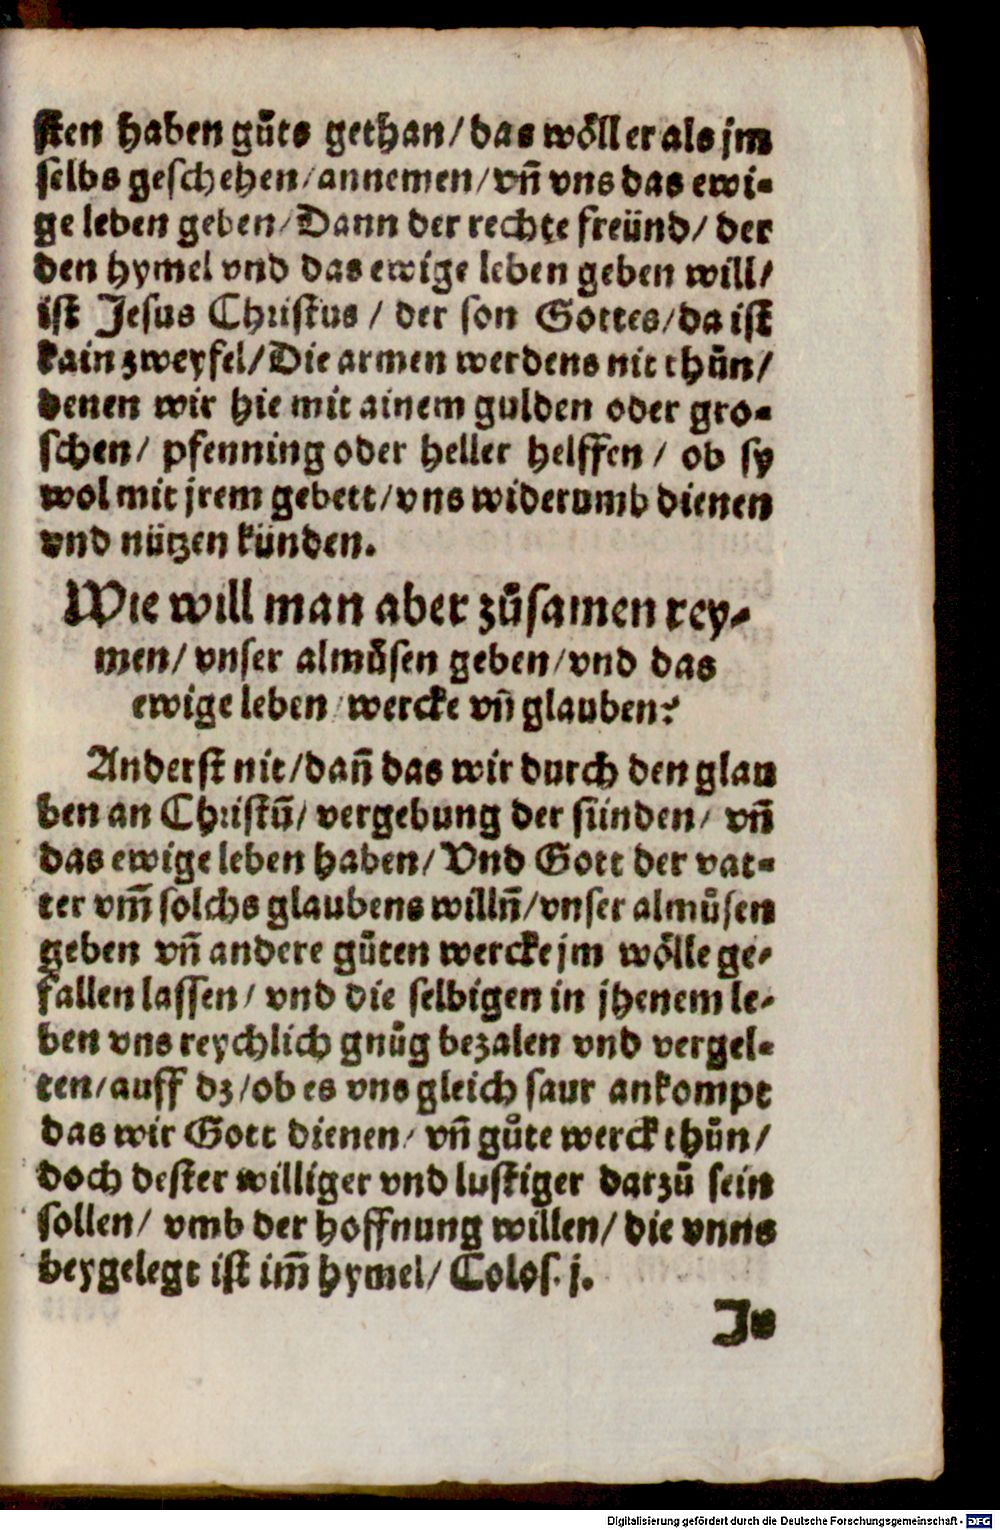 sten haben gůts gethan/das wöll er als jm
selbs geschehen/annemen/vñ vns das ewi-
ge leben geben/Dann der rechte freünd/ der
den hymel vnd das ewige leben geben will/
ist Jesus Christus / der son Gottes/da ist
kain zweyfel/Die armen werdens nit thůn/
denen wir hie mit ainem gulden oder gro-
schen/ pfenning oder heller helffen / ob sy
wol mit jrem gebett/vns widerumb dienen
vnd nützen künden.
Wie will man aber zůsamen rey-
men/ vnser almůsen geben/vnd das
ewige leben/wercke vñ glauben?
Anderst nit/dañ das wir durch den glau
ben an Christū/ vergebung der sünden/ vñ
das ewige leben haben/ Vnd Gott der vat-
ter vm̄ solchs glaubens willñ/vnser almůsen
geben vñ andere gůten wercke jm wölle ge-
fallen lassen/ vnd die selbigen in jhenem le-
ben vns reychlich gnůg bezalen vnd vergel-
ten/auff dz/ob es vns gleich saur ankompt
das wir Gott dienen/ vñ gůte werck thůn/
doch dester williger vnd lustiger darzů sein
sollen/ vmb der hoffnung willen/ die vnns
beygelegt ist im̄ hymel/ Colos. j.
Ju
Digitalisierung gefördert durch die Deutsche Forschungsgemeinschaft - DFG